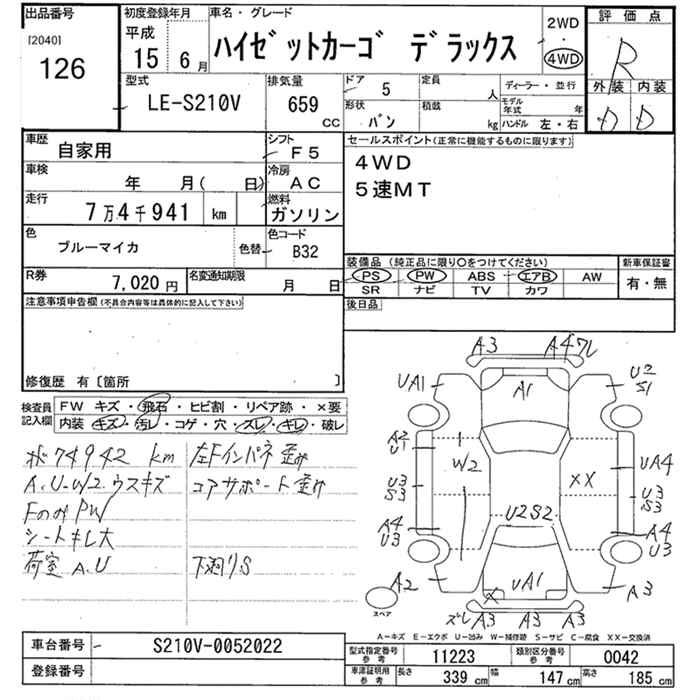 出品番号
[2040]
126
初度登録年月
平成
15 6月
車名・グレード
ハイゼットカーゴ デラックス
2WD
・
4WD
評価点
R
外装 内装
D D
型式
LE-S210V
排気量
659
CC
ドア
5
定員
人
形状
バン
積載
kg
ディーラー・並行
モデル年式 年
ハンドル 左・右
車歴
自家用
シフト
F5
車検
年 月( 日)
冷房
AC
走行
7万4千941 km
燃料
ガソリン
色
ブルーマイカ
色替
色コード
B32
R券
7,020円
名変通知期限
月 日
セールスポイント(正常に機能するものに限ります)
4WD
5速MT
装備品(純正品に限り○をつけてください)
PS PW ABS エアB AW
SR ナビ TV カワ
新車保証書
有・無
後日品
注意事項申告欄(不具合内容等は具体的に記入して下さい)
修復歴 有〔箇所 〕
検査員記入欄
FW キズ・飛石・ヒビ割・リペア跡・×要
内装 キズ・汚レ・コゲ・穴・スレ・キレ・破レ
メ74942 km
A.U-W2.ウスキズ
FのみPW
シートキレ大
荷室 A.U
左Fインパネ歪み
コアサポート歪み
下廻りS
A3 A4ワレ
UA1 A1 U2 S1
A2 U1
W2 XX UA4
U3 S3 U3 S3
U2S2
A4 U3 A4 U3
A2 UA1 A3
X
ズレA3 A3 A3
スペア
A−キズ E−エクボ U−凹み W−補修跡 S−サビ C−腐食 XX−交換済
車台番号
S210V-0052022
登録番号
型式指定番号 参考
11223
類別区分番号 参考
0042
車庫証明用 参考
長さ 339cm 幅 147cm 高さ 185cm